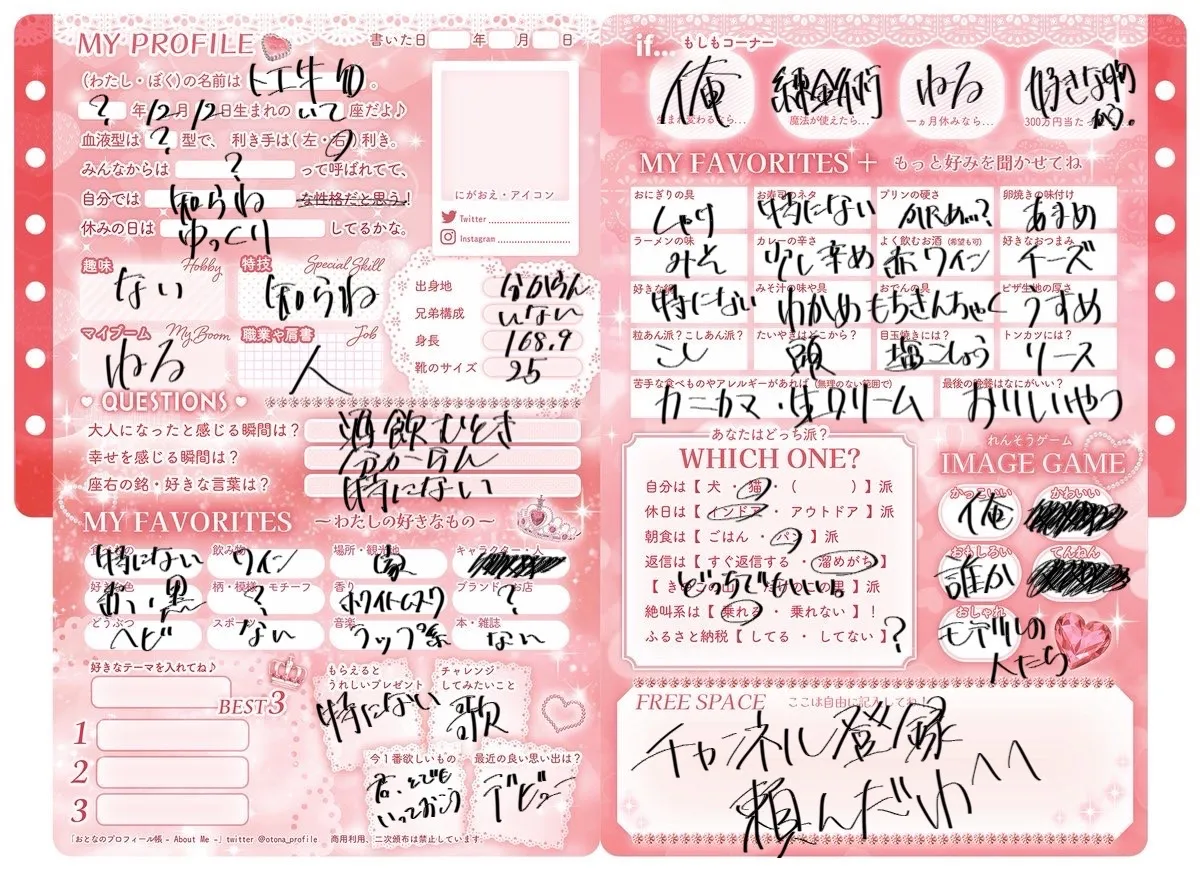 MY PROFILE
書いた日 年 月 日
(わたし・ぼく)の名前は 。
? 年12月12日生まれの いて 座だよ♪
血液型は ? 型で、 利き手は(左・右)利き。
みんなからは ? って呼ばれてて、
自分では 知らね な性格だと思う!
休みの日は ゆっくり してるかな。
にがおえ・アイコン
Twitter
Instagram
趣味 Hobby
ない
特技 Special Skill
知らね
マイブーム My Boom
ねる
職業や肩書 Job
人
出身地 分からん
兄弟構成 いない
身長 168.9
靴のサイズ 25
QUESTIONS
大人になったと感じる瞬間は? 酒飲むとき
幸せを感じる瞬間は? 分からん
座右の銘・好きな言葉は? 特にない
MY FAVORITES ～わたしの好きなもの～
特にない
飲み物 ワイン
場所・観光地 家
キャラクター・人
好きな色 黒
柄・模様・モチーフ ?
香り ホワイトムスク
ブランド・お店 ?
どうぶつ ヘビ
スポーツ ない
音楽 ラップ系
本・雑誌 ない
好きなテーマを入れてね♪
BEST3
1
2
3
もらえるとうれしいプレゼント
特にない
チャレンジしてみたいこと
歌
今1番欲しいもの
君、とでもいっておこう
最近の良い思い出は?
デビュー
「おとなのプロフィール帳 - About Me -」twitter @otona_profile 商用利用、二次頒布は禁止しています。
if... もしもコーナー
俺
生まれ変わるなら…
錬金術
魔法が使えたら…
ねる
一ヵ月休みなら…
好きな物かう.
300万円当たったら
MY FAVORITES + もっと好みを聞かせてね
おにぎりの具 しゃけ
お寿司のネタ 特にない
プリンの硬さ かため…?
卵焼きの味付け あまめ
ラーメンの味 みそ
カレーの辛さ 少し辛め
よく飲むお酒(希望も可) 赤ワイン
好きなおつまみ チーズ
特にない
みそ汁の味や具 わかめ
おでんの具 もちきんちゃく
ピザ生地の厚さ うすめ
粒あん派?こしあん派? こし
たいやきはどこから? 頭
目玉焼きには? 塩こしょう
トンカツには? ソース
苦手な食べものやアレルギーがあれば(無理のない範囲で)
カニカマ・生クリーム
最後の晩餐はなにがいい?
おいしいやつ
あなたはどっち派?
WHICH ONE?
自分は【 犬 ・ 猫 ・ ( ) 】派
休日は【 インドア ・ アウトドア 】派
朝食は【 ごはん ・ パン 】派
返信は【 すぐ返信する ・ 溜めがち 】
どっちでもいい。】派
絶叫系は【 乗れる ・ 乗れない 】!
ふるさと納税【 してる ・ してない 】?
れんそうゲーム
IMAGE GAME
かっこいい 俺
かわいい
おもしろい 誰か
てんねん
おしゃれ モデルの人たち
FREE SPACE ここは自由に記入してね!
チャンネル登録
頼んだわ^^